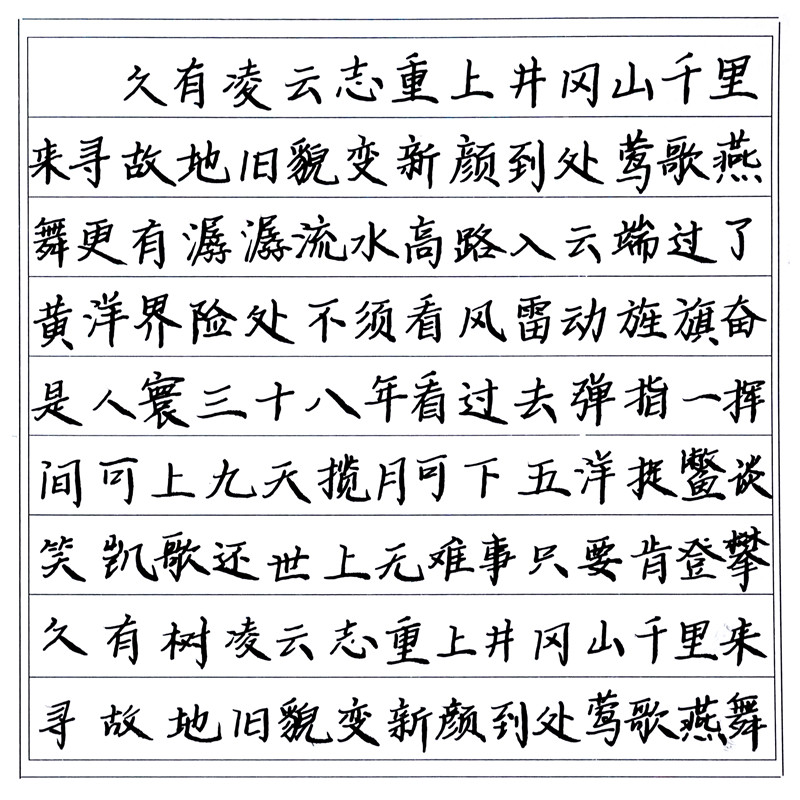 久有凌云志重上井冈山千里
来寻故地旧貌变新颜到处莺歌燕
舞更有潺潺流水高路入云端过了
黄洋界险处不须看风雷动旌旗奋
是人寰三十八年看过去弹指一挥
间可上九天揽月可下五洋捉鳖谈
笑凯歌还世上无难事只要肯登攀
久有树凌云志重上井冈山千里来
寻故地旧貌变新颜到处莺歌燕舞